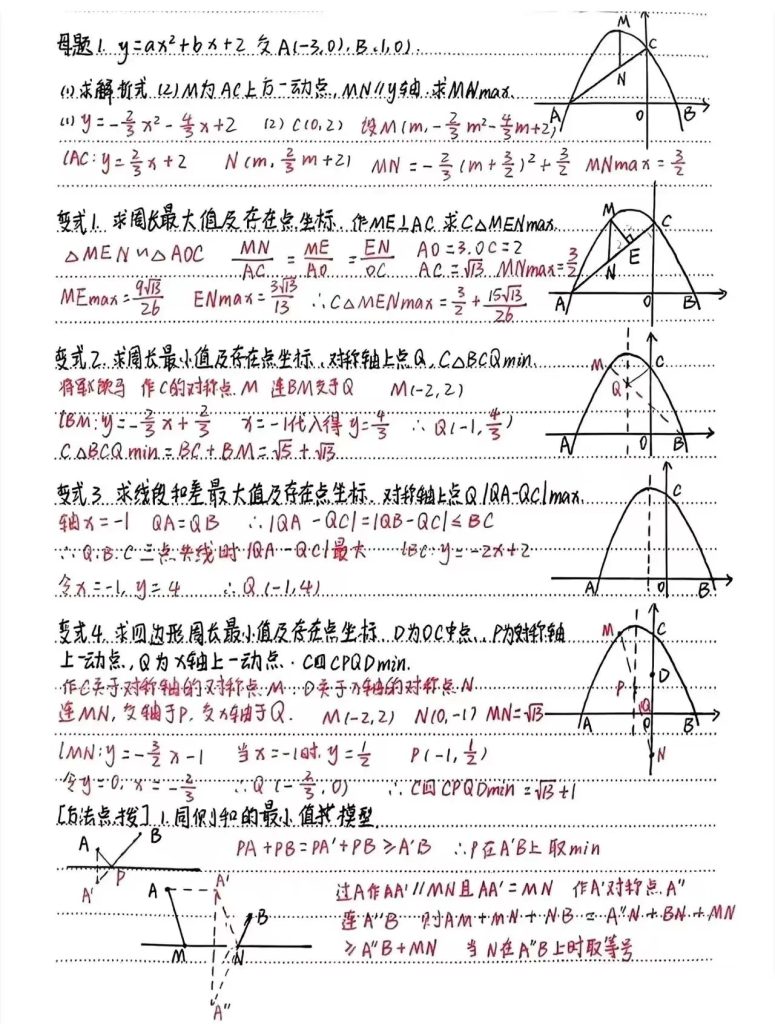 母题1. y=ax²+bx+2 交A(-3,0), B(1,0).
(1)求解析式 (2) M为AC上方一动点, MN∥y轴.求MNmax.
(1) y=-2/3x²-4/3x+2 (2) C(0,2) 设M(m,-2/3m²-4/3m+2)
lAC:y=2/3x+2 N(m,2/3m+2) MN=-2/3(m+3/2)²+3/2 MNmax=3/2
M
C
N
A
O
B
变式1. 求周长最大值及存在点坐标. 作ME⊥AC 求C△MENmax.
△MEN∽△AOC MN/AC=ME/AO=EN/OC AO=3.OC=2
AC=√13 MNmax=3/2
MEmax=9√13/26 ENmax=3√13/13 ∴C△MENmax=3/2+15√13/26
M
C
E
N
A
O
B
变式2. 求周长最小值及存在点坐标. 对称轴上点Q, C△BCQmin.
将军饮马 作C的对称点M 连BM交于Q M(-2,2)
lBM:y=-2/3x+2/3 x=-1代入得y=4/3 ∴Q(-1,4/3)
C△BCQmin=BC+BM=√5+√13
M
C
Q
A
O
B
变式3. 求线段和差最大值及存在点坐标. 对称轴上点Q |QA-QC|max.
轴x=-1 QA=QB ∴|QA-QC|=|QB-QC|≤BC
∴Q.B.C三点共线时|QA-QC|最大 lBC:y=-2x+2
令x=-1, y=4 ∴Q(-1,4)
C
A
O
B
变式4. 求四边形周长最小值及存在点坐标. D为OC中点, P为对称轴
上一动点, Q为x轴上一动点. C四CPQDmin.
作C关于对称轴的对称点M D关于x轴的对称点N
连MN, 交轴于P, 交x轴于Q. M(-2,2) N(0,-1) MN=√13
lMN:y=-3/2x-1 当x=-1时, y=1/2 P(-1,1/2)
令y=0, x=-2/3 ∴Q(-2/3,0) ∴C四CPQDmin=√13+1
M
C
D
P
Q
A
O
B
N
[方法点拨] 1.同侧和的最小值 模型
A
B
A'
P
PA+PB=PA'+PB≥A'B ∴P在A'B上取min
A
A'
B
M
N
A"
过A作AA'∥MN且AA'=MN 作A'对称点A"
连A"B 则AM+MN+NB=A"N+BN+MN
≥A"B+MN 当N在A"B上时取等号